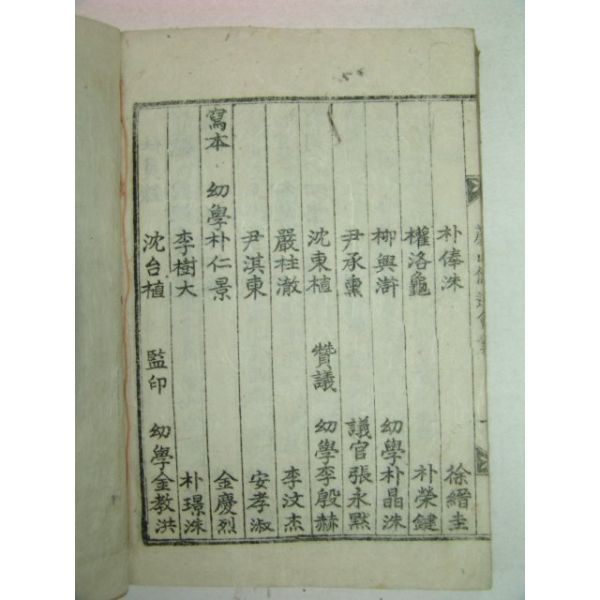 朴俸洙 徐縉圭
權洛龜 朴榮鍵
柳興澣 幼學朴晶洙
尹承熏 議官張永默
沈東植 贊議 幼學李殷赫
嚴柱澈 李汶杰
尹淇東 安孝淑
寫本 幼學朴仁景 金慶烈
李樹大 朴璟洙
沈台植 監印 幼學金教洪